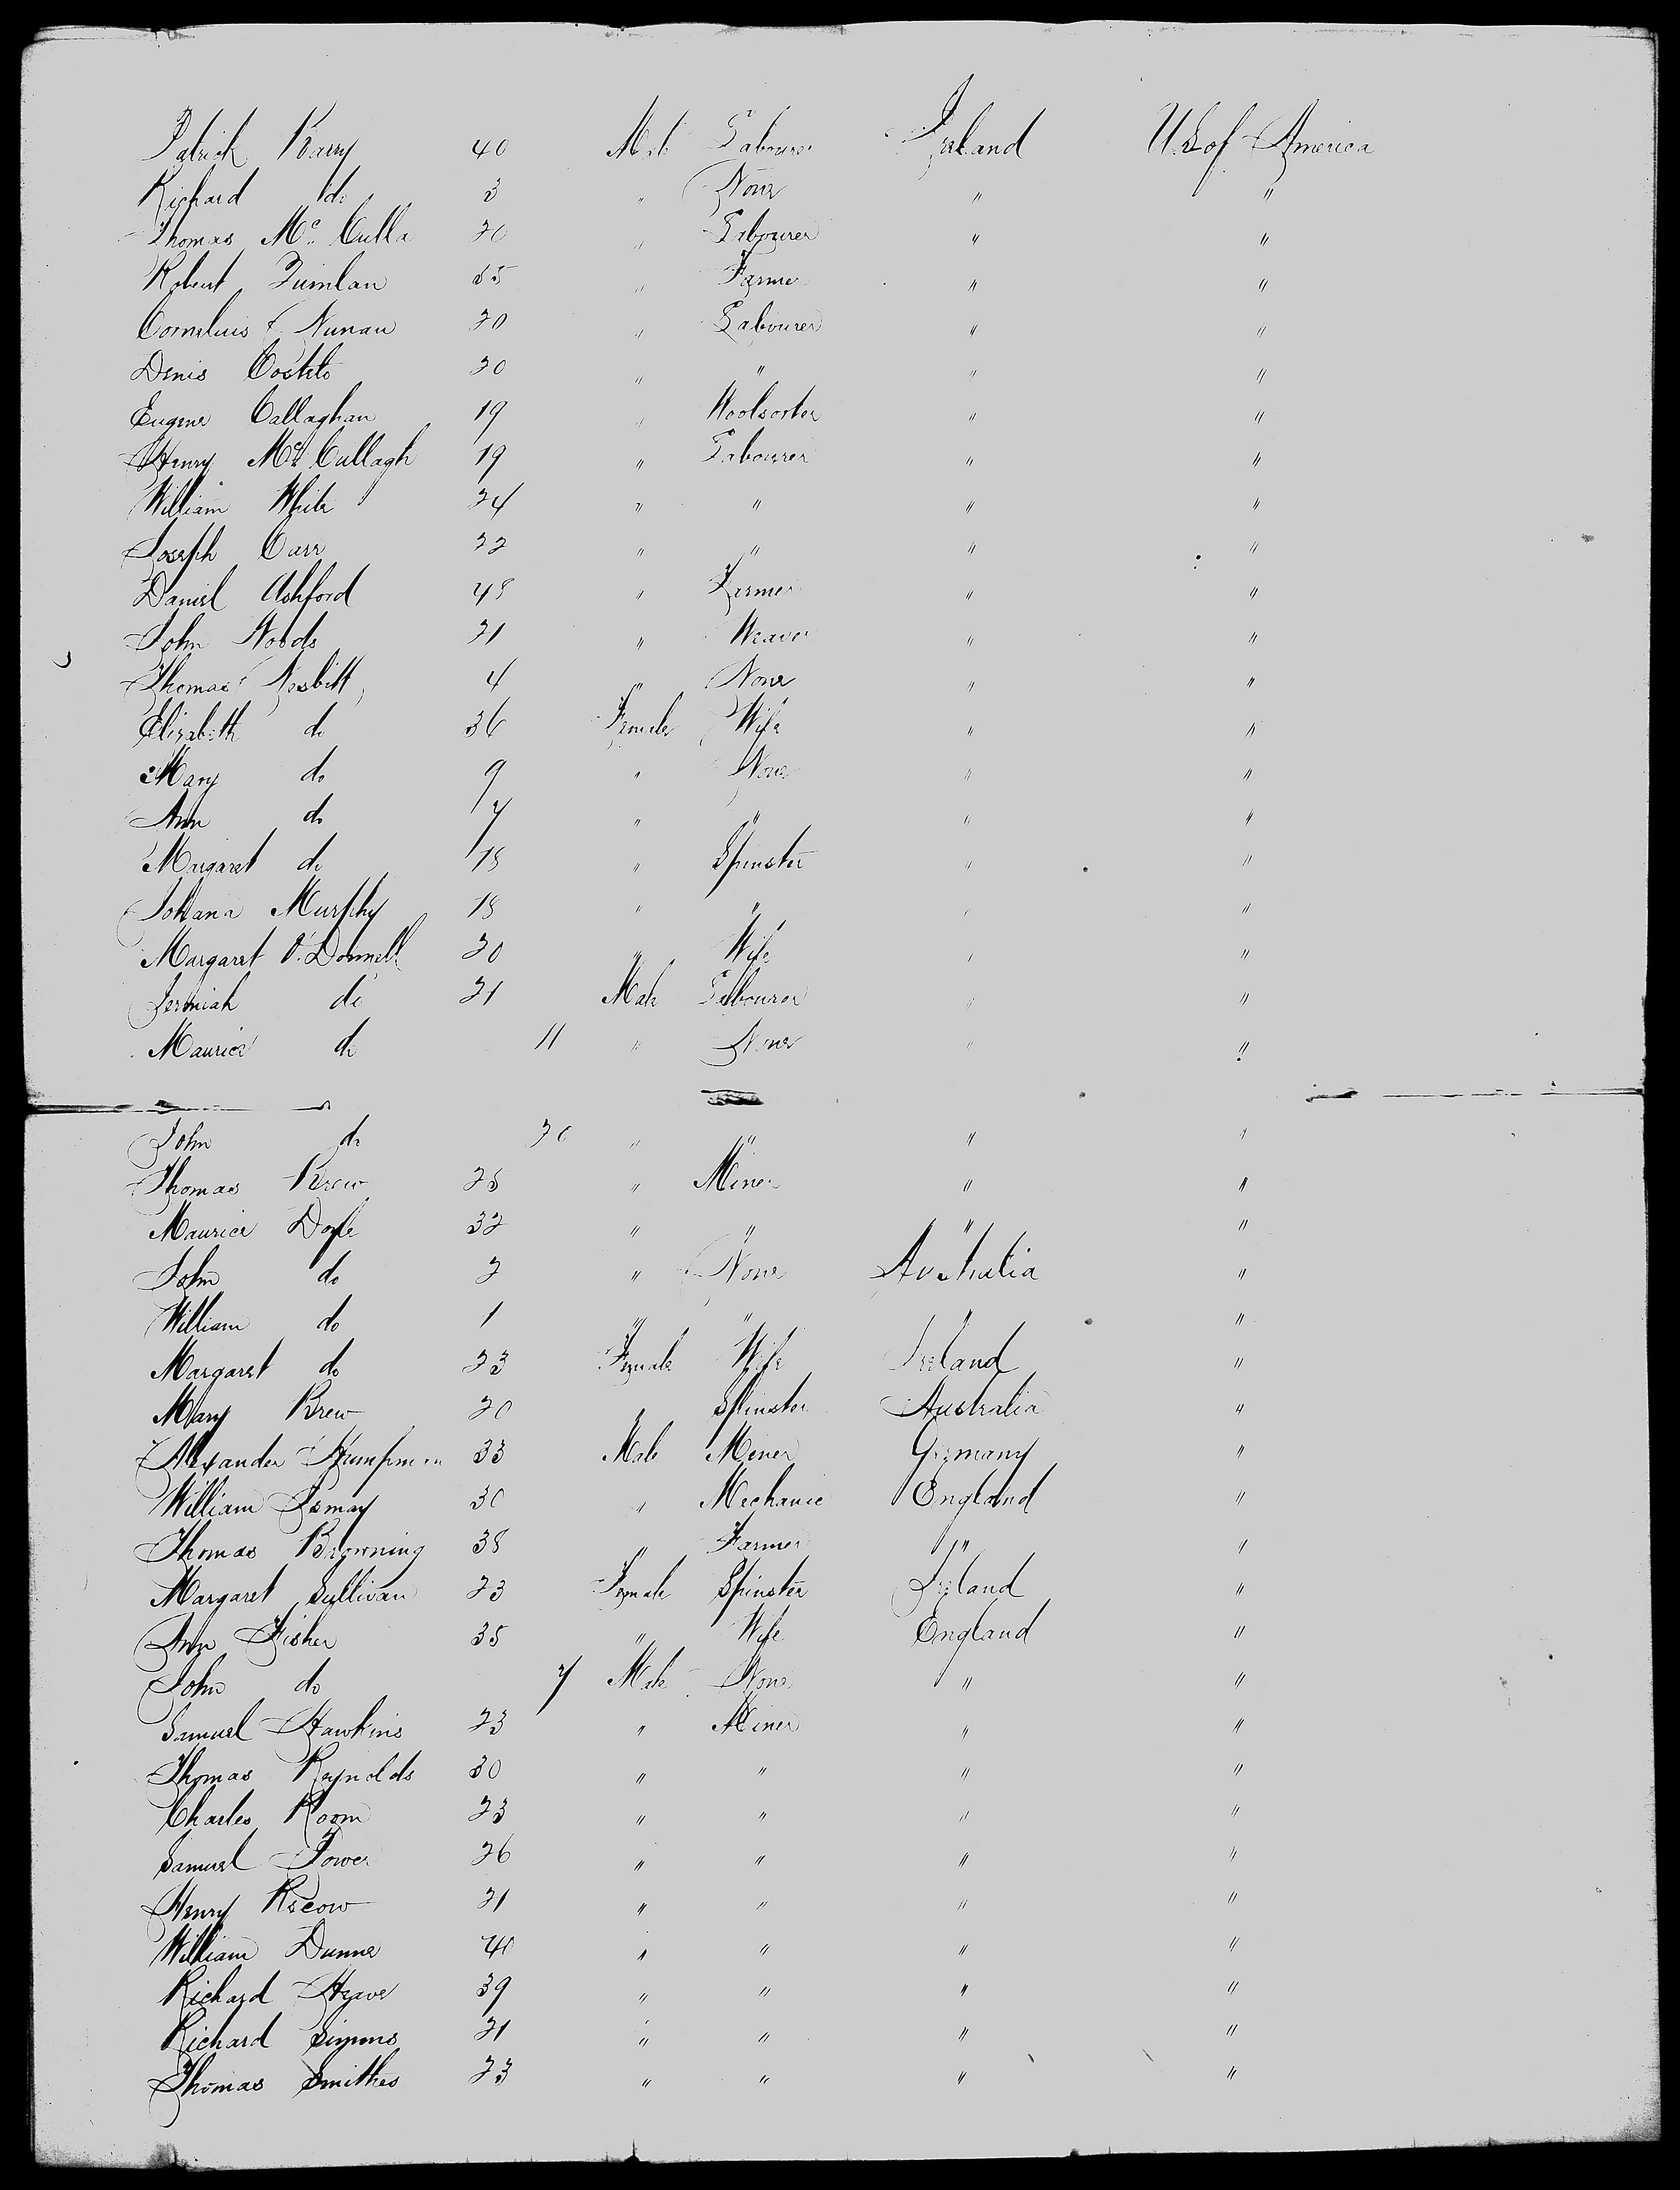 Patrick Barry 40 Male Labourer Ireland U.S. of America
Richard do 3 " None " "
Thomas Mc. Culla 20 " Labourer " "
Robert Quinlan 35 " Farmer " "
Cornelius Nunan 20 " Labourer " "
Denis Costelo 20 " " " "
Eugene Callaghan 19 " Woolsorter " "
Henry Mc Cullagh 19 " Labourer " "
William White 24 " " " "
Joseph Carr 22 " " " "
Daniel Ashford 48 " Farmer " "
John Woods 21 " Weaver " "
Thomas Nesbitt 4 " None " "
Elizabeth do 36 Female Wife " "
Mary do 9 " None " "
Ann do 7 " " " "
Margaret do 18 " Spinster " "
Johana Murphy 18 " " " "
Margaret O'Donnell 20 " Wife " "
Jermiah do 21 Male Labourer " "
Maurice do 11 " None " "
John do " " " "
Thomas Brew 28 " Miner " "
Maurice Doyle 32 " " " "
John do 2 " None Australia "
William do 1 " " " "
Margaret do 23 Female Wife Ireland "
Mary Brew 20 " Spinster Australia "
Alexander 33 Male Miner Germany "
William Ismay 30 " Mechanic England "
Thomas Browning 38 " Farmer " "
Margaret Sullivan 23 Female Spinster Ireland "
Ann Fisher 35 " Wife England "
John do 7 Male None " "
Samuel Hawkins 23 " Miner " "
Thomas Reynolds 30 " " " "
Charles Room 23 " " " "
Samuel Power 26 " " " "
Henry 21 " " " "
William Dunne 40 " " " "
Richard 39 " " " "
Richard Simons 21 " " " "
Thomas Smithes 23 " " " "